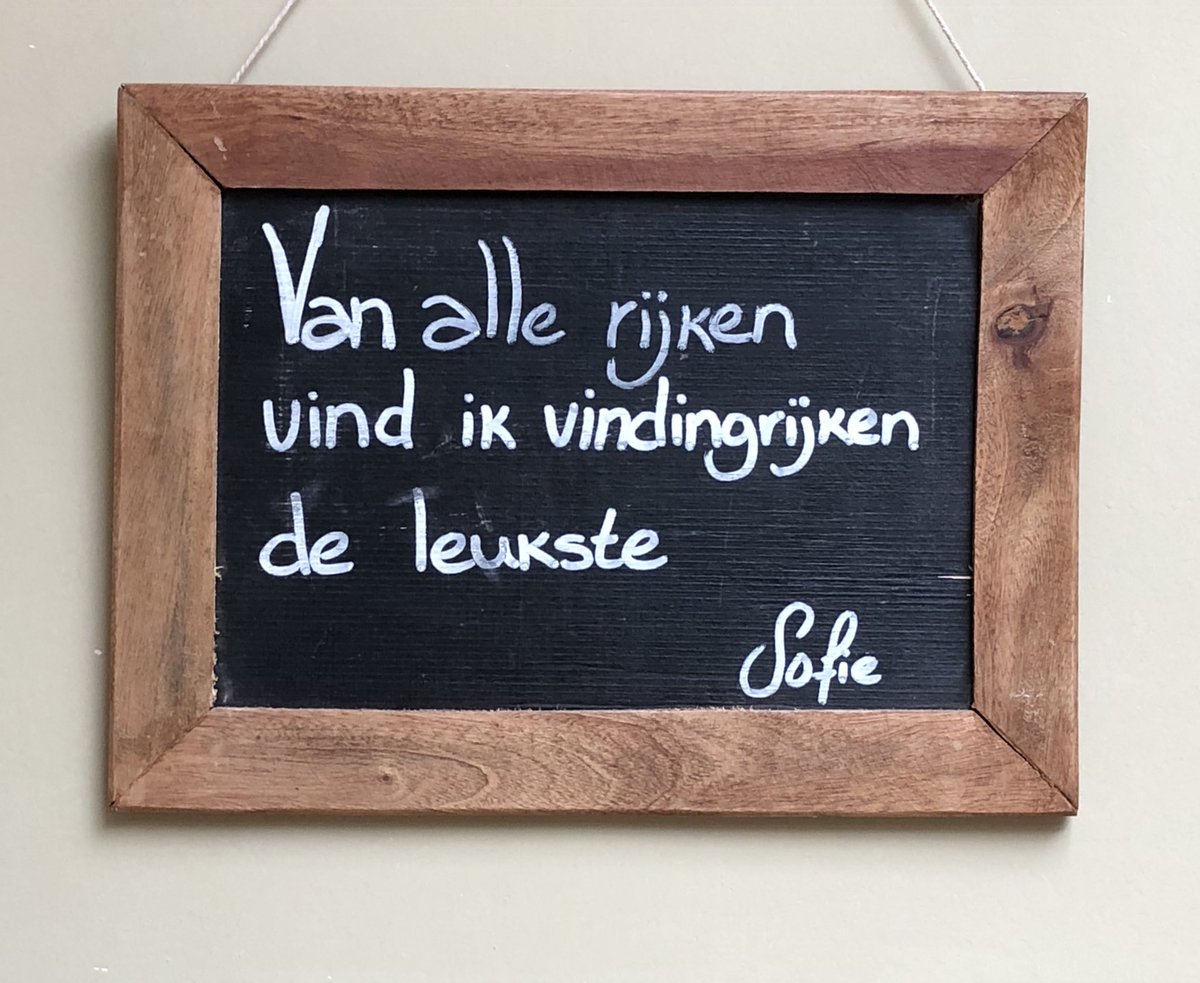 Van alle rijken
vind ik vindingrijken
de leukste
Sofie